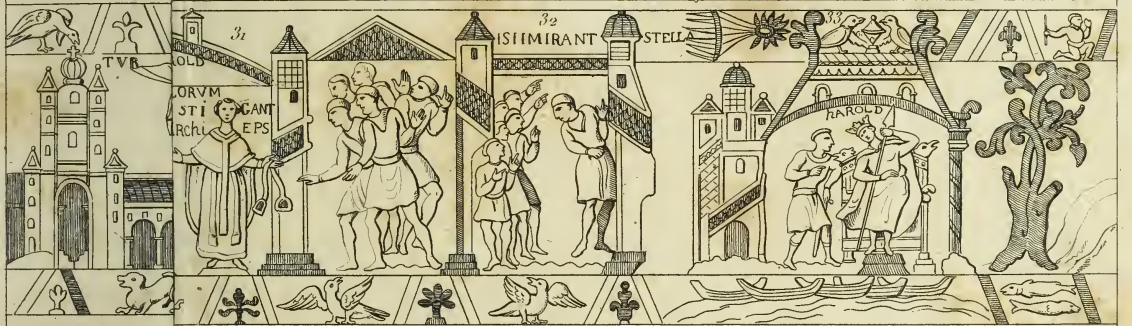 TVR
31
OLD
CORVM
STI GANT
RCHI EPS
32
ISTIMIRANT STELLA
33
HAROLD